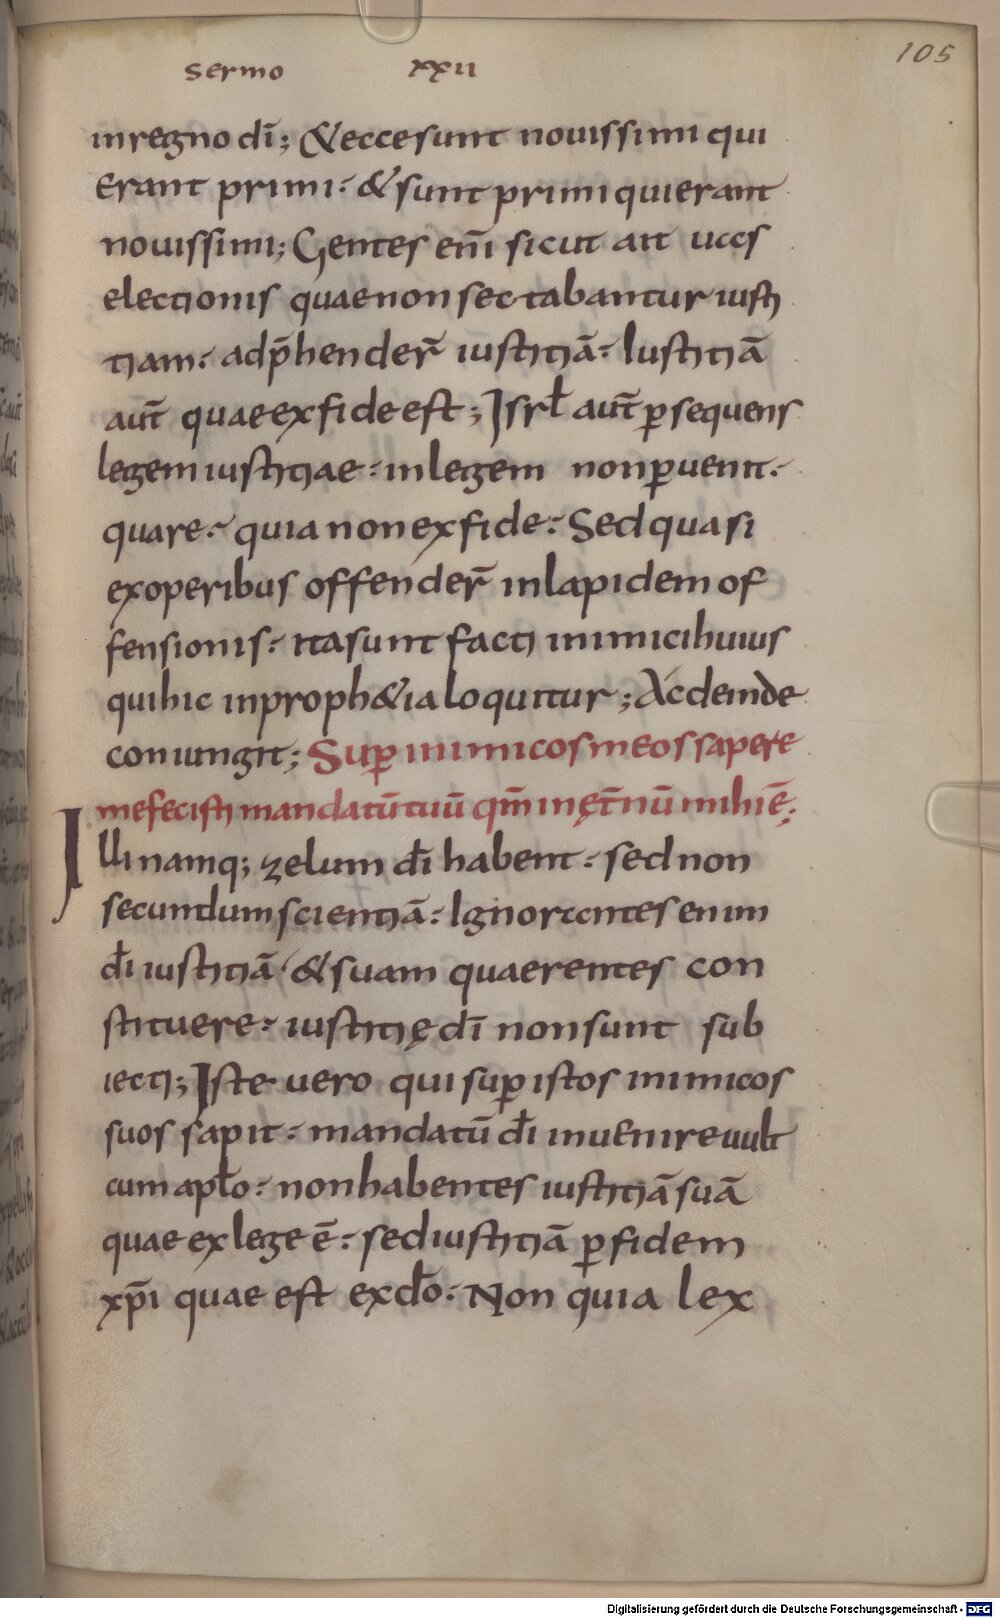 105
sermo xxii
in regno dī; & ecce sunt nouissimi qui
erant primi. & sunt primi qui erant
nouissimi; Gentes eni̅ sicut ait uas
electionis quae non sectabantur iusti
tiam. adp̄hender̄ iustitiā. Iustitiā
aut̄ quae ex fide est; Isrł aut̄ ꝑsequens
legem iustitiae. in legem non ꝑuenit.
quare. quia non ex fide. Sed quasi
ex operibus offender̄ in lapidem of
fensionis. ita sunt facti inimici huius
qui hic in proph&ia loquitur; Ac deinde
coniungit; Suꝑ inimicos meos sapere
me fecisti mandatū tuū qm̄ in ęt̄nū mihi ē;
Illi namq; zelum dī habent. sed non
secundum scientiā. Ignorantes enim
dī iustitiā. & suam quaerentes con
stituere. iustitię dī non sunt sub
iecti; Iste uero qui suꝑ istos inimicos
suos sapit. mandatū dī inuenire uult
cum apło. non habentes iustitiā suā
quae ex lege ē. sed iustitiā ꝑ fidem
xp̄i quae est ex do̅. Non quia lex
Digitalisierung gefördert durch die Deutsche Forschungsgemeinschaft - DFG